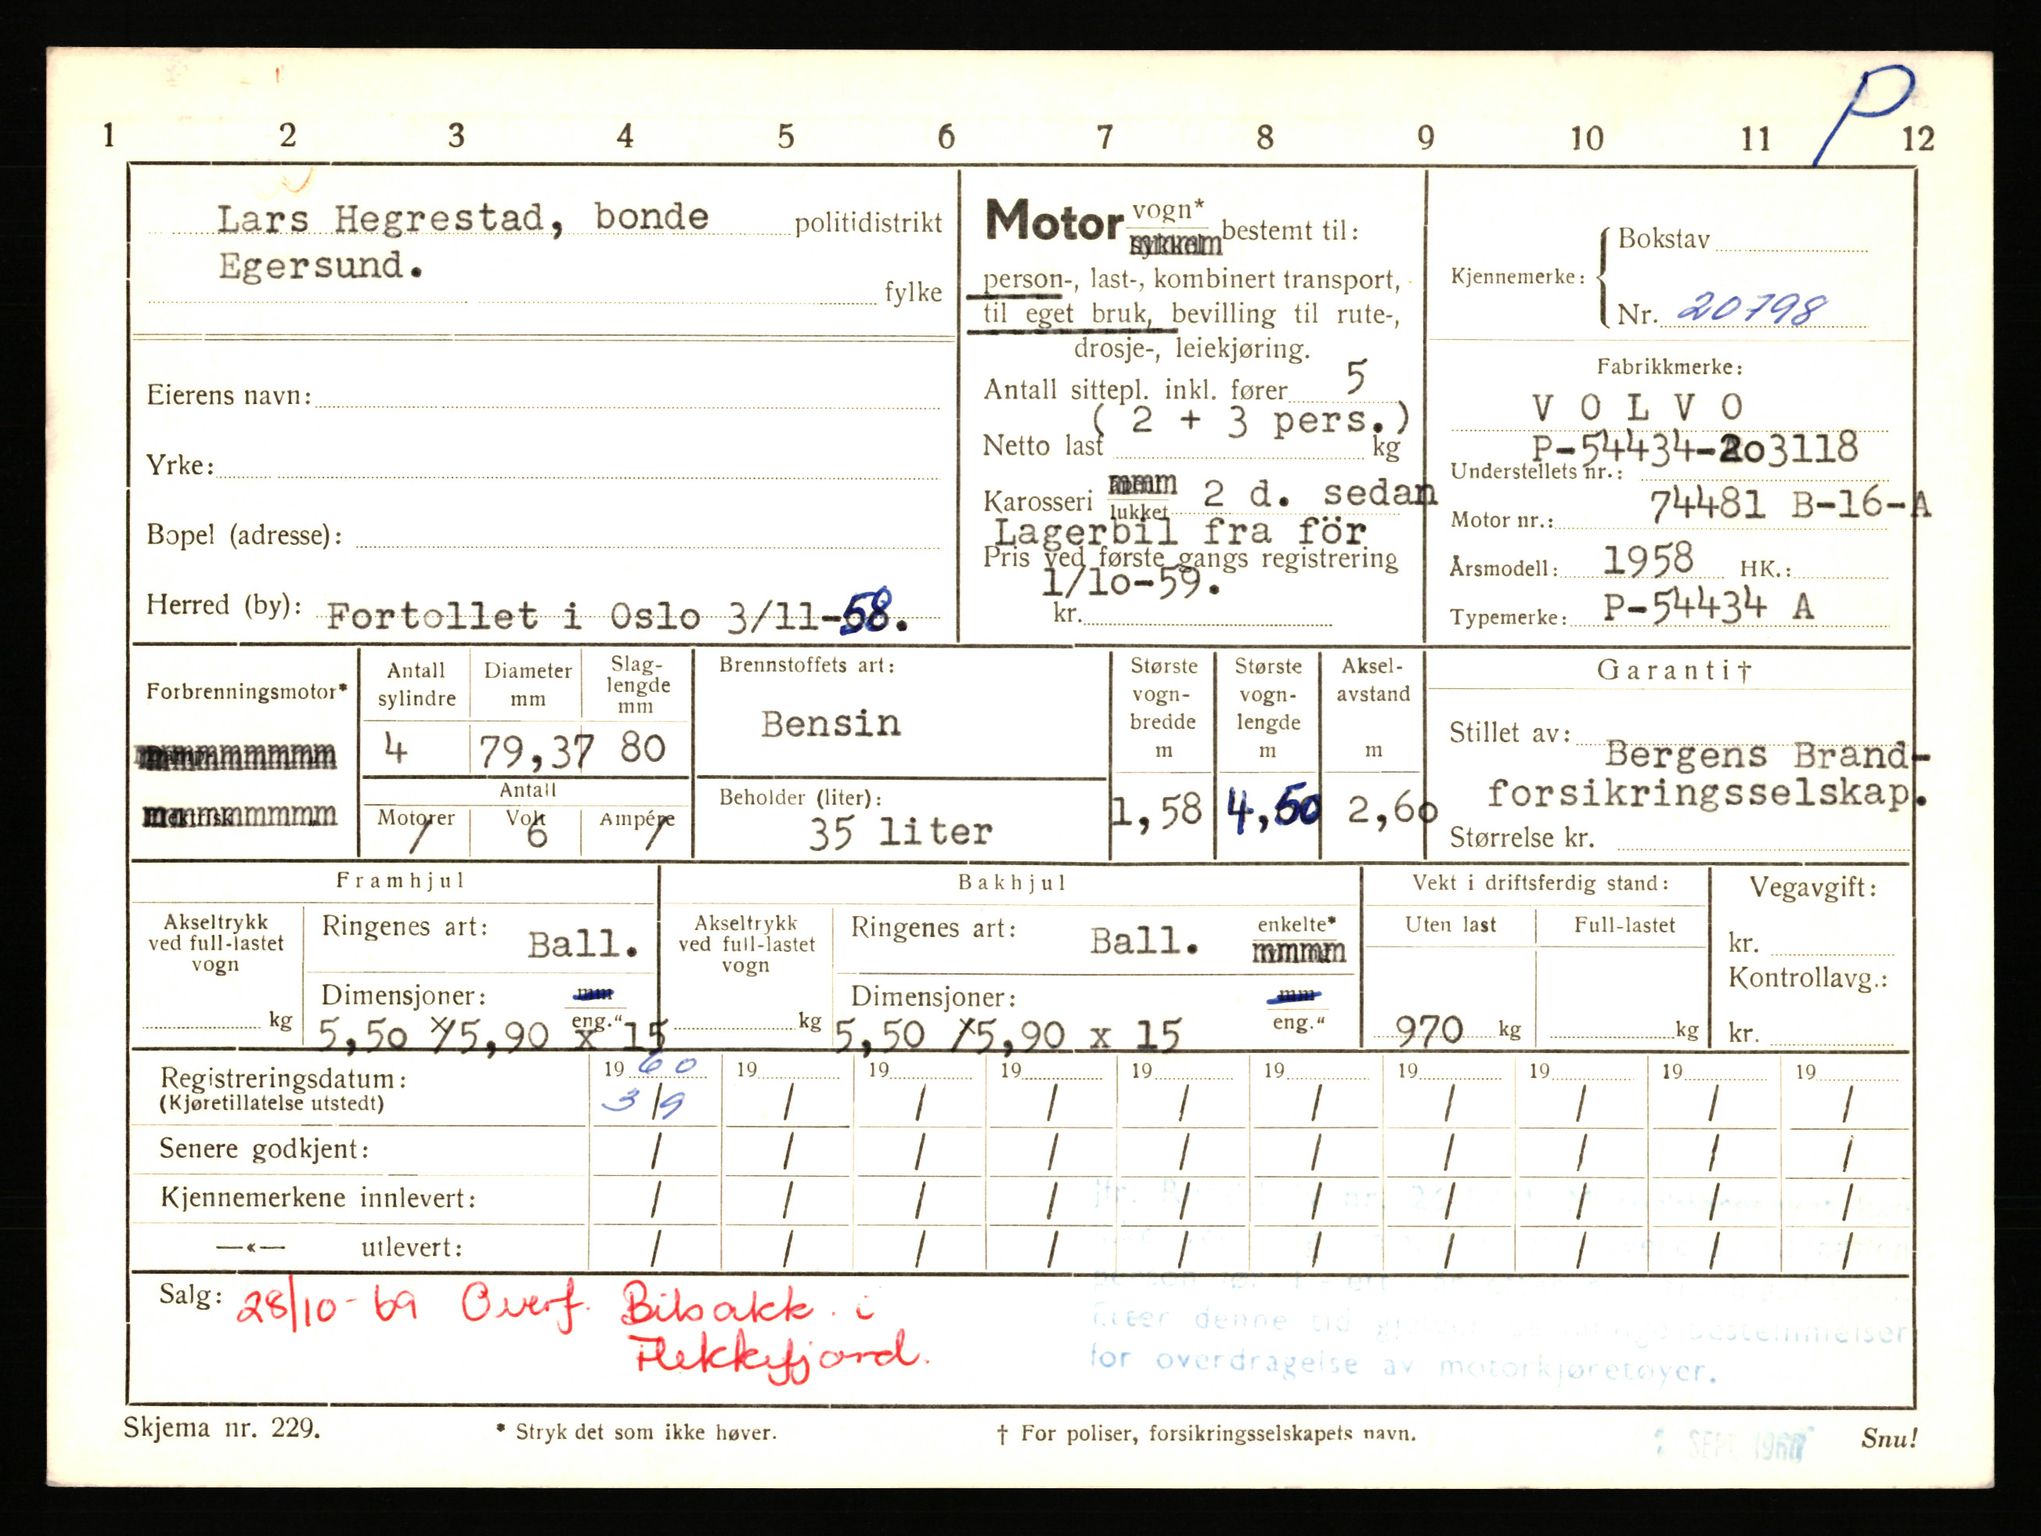 P
1 2 3 4 5 6 7 8 9 10 11 12
Lars Hegrestad, bonde politidistrikt
Egersund.
fylke
Eierens navn:
Yrke:
Bopel (adresse):
Herred (by): Fortollet i Oslo 3/11-58.
Motor vogn* bestemt til:
person-, last-, kombinert transport,
til eget bruk, bevilling til rute-,
drosje-, leiekjøring.
Antall sittepl. inkl. fører 5
( 2 + 3 pers.)
Netto last kg
Karosseri lukket 2 d. sedan
Lagerbil fra för
Pris ved første gangs registrering
1/10-59.
kr.
Kjennemerke: Bokstav
Nr. 20798
Fabrikkmerke:
V O L V O
P-54434-203118
Understellets nr.:
Motor nr.: 74481 B-16-A
Årsmodell: 1958 HK.:
Typemerke: P-54434 A
Forbrenningsmotor*
Elektrisk
Antall sylindre
4
Diameter mm
79,37
Slag-
lengde
mm
80
Antall
Motorer Volt Ampére
/ 6 /
Brennstoffets art:
Bensin
Beholder (liter):
35 liter
Største
vogn-
bredde
m
1,58
Største
vogn-
lengde
m
4,50
Aksel-
avstand
m
2,60
Garanti†
Stillet av:
Bergens Brand-
forsikringsselskap.
Størrelse kr.
Framhjul
Akseltrykk
ved full-lastet
vogn
kg
Ringenes art: Ball.
Dimensjoner: mm
eng."
5,50 x/5,90 x 15
Bakhjul
Akseltrykk
ved full-lastet
vogn
kg
Ringenes art: Ball. enkelte*
Dimensjoner: mm
eng."
5,50 x/5,90 x 15
Vekt i driftsferdig stand:
Uten last Full-lastet
970 kg kg
Vegavgift:
kr.
Kontrollavg.:
kr.
Registreringsdatum: 1960 19 19 19 19 19 19 19 19 19
(Kjøretillatelse utstedt) 3/9 / / / / / / / / /
Senere godkjent: / / / / / / / / / /
Kjennemerkene innlevert: / / / / / / / / / /
—«— utlevert: / / / / / / / / / /
Salg: 28/10-69 Overf. Bilsakk. i
Flekkefjord.
Etter denne tid bestemmelser
for overdragelse av motorkjøretøyer.
Skjema nr. 229. * Stryk det som ikke høver. † For poliser, forsikringsselskapets navn. Snu!
SEPT. 1960